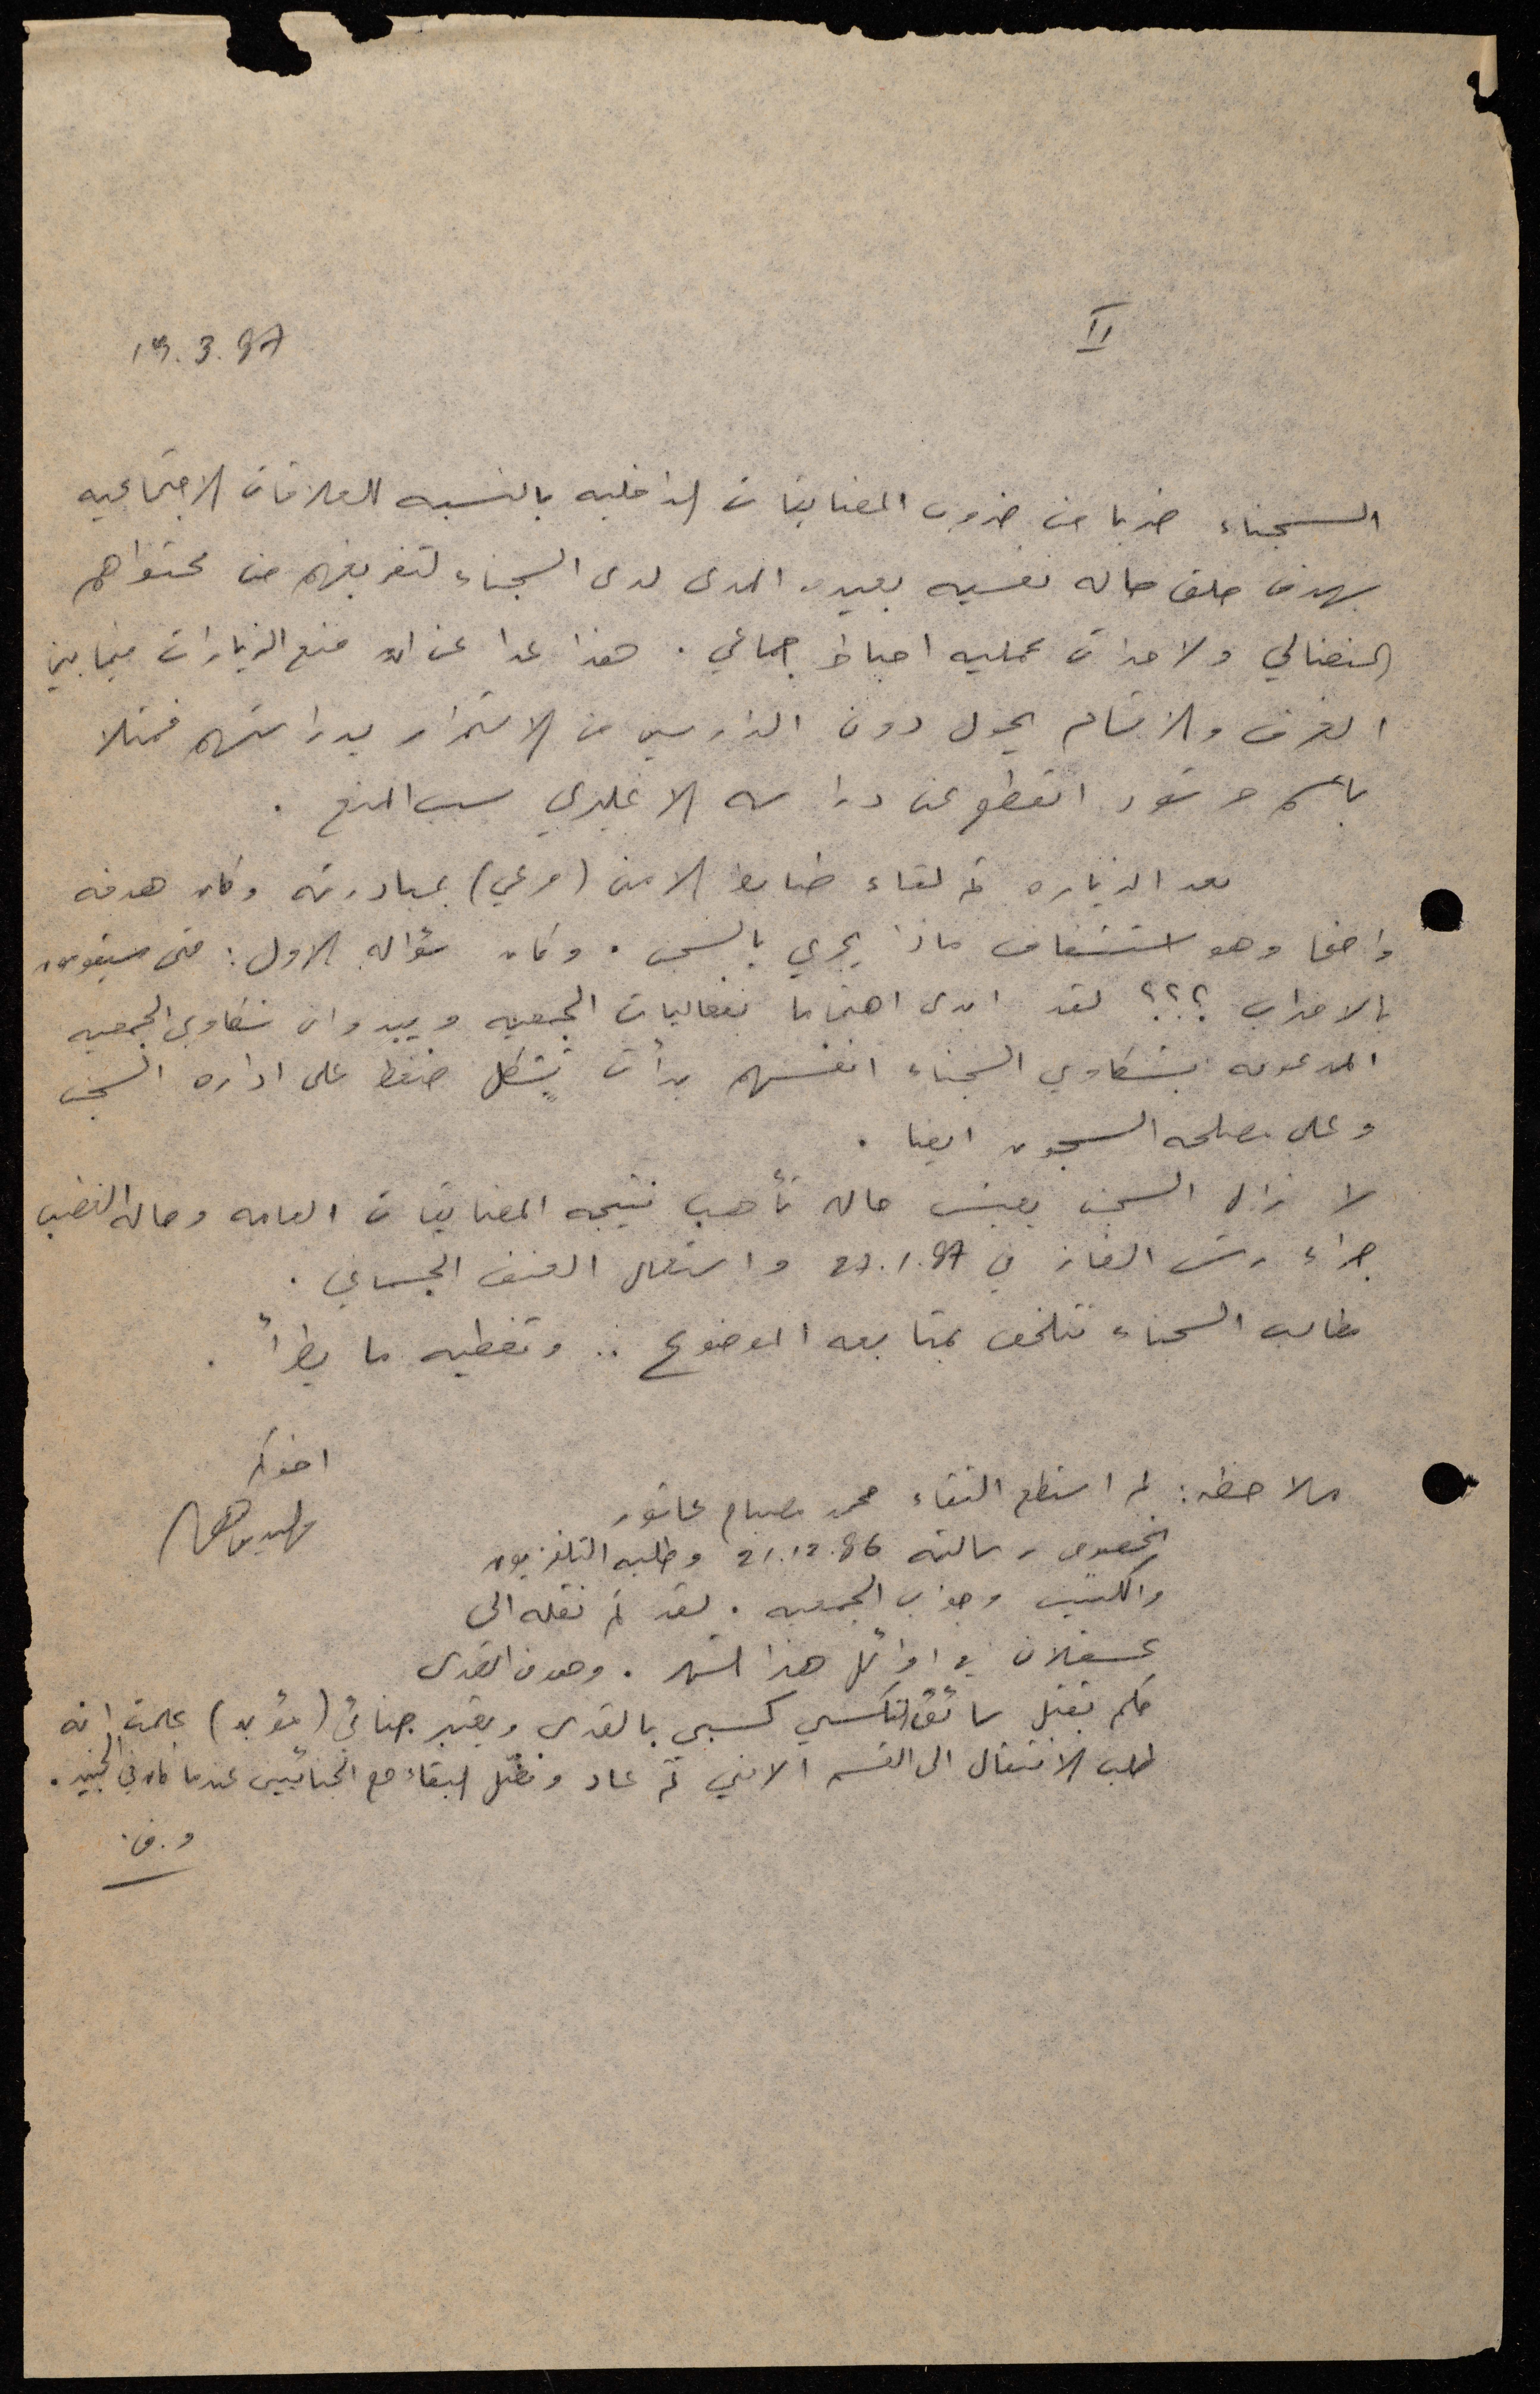 II
13.3.87
السجناء ضربا من ضروب المضايقات الداخليه بالنسبه للعلاقات الاجتماعيه
بهدف خلق حاله نفسيه بعيده المدى لدى السجناء لتفريغهم من محتواهم
النضالي ولاحداث عمليه احباط جماعي . هذا عدا عن ان منع الزيارات فيما بين
الغرف والاقسام يحول دون الدارسين من الاستمرار بدراستهم فمثلا
باسم انقطع عن دراسه الانجليزي بسبب المنع .
بعد الزياره تم لقاء ضابط الامن (مرعي) بمبادرته وكان هدفه
واضحا وهو استشفاف ماذا يجري بالسجن . وكان سؤاله الاول : متى سيقومون
بالاضراب ؟؟؟ لقد ابدى اهتماما بفعاليات الجمعيه ويبدو ان شكاوي الجمعيه
المدعومه بشكاوي السجناء انفسهم بدأت تشكل ضغط على اداره السجن
وعلى مصلحه السجون ايضا .
لا زال السجن يعيش حاله تأهب نتيجه المضايقات العامه وحاله الغضب
جراء رش الغاز في 27.1.87 واستعمال العنف الجسماني .
مطالب السجناء تتلخص بمتابعه الموضوع .. وتغطيه ما يطرأ .
اخوكم
ملاحظه : لم استطع التقاء محمد مصباح عاشور
بخصوص رسالته 21.12.86 وطلبه التلفزيون
والكتب وجواب الجمعيه . لقد تم نقله الى
عسقلان في اوائل هذا الشهر . وهو من القدس
حكم بقتل سائق تكسي كسبي بالقدس ويعتبر جنائي (مؤبد) علمت انه
طلب الانتقال الى القسم الامني ثم عاد وفضل البقاء مع الجنائيين عندما كان في الجنيد .
و.ف.